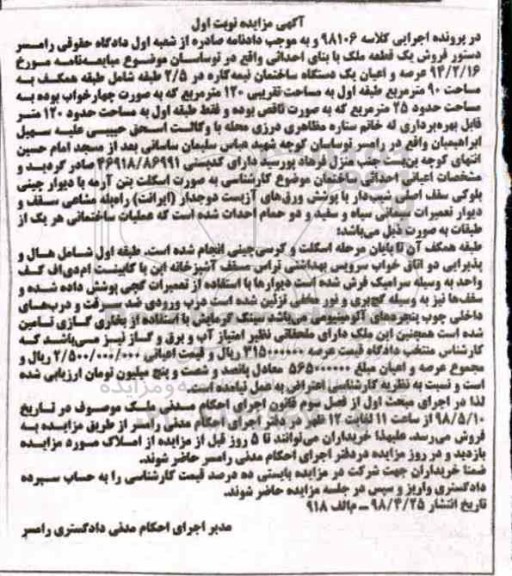 آگهی مزایده نوبت اول
در پرونده اجرایی کلاسه ۹۸۱۰۶ و به موجب دادنامه صادره از شعبه اول دادگاه حقوقی رامسر
دستور فروش یک قطعه ملک با بنای احداثی واقع در توساسان موضوع مبایعه‌نامه مورخ
۹۴/۲/۱۶ عرصه و اعیان یک دستگاه ساختمان نیمه‌کاره در ۲/۵ طبقه شامل طبقه همکف به
مساحت ۹۰ مترمربع طبقه اول به مساحت تقریبی ۱۲۰ مترمربع که به صورت چهارخواب بوده به
مساحت حدود ۲۵ مترمربع که به صورت ناقص بوده و فقط طبقه اول به مساحت حدود ۱۲۰ متر
قابل بهره‌برداری له خانم ستاره مظاهری درزی محله با وکالت اسحق حبیبی علیه سهیل
ابراهیمیان واقع در رامسر توساسان کوچه شهید عباس سلیمان ساسانی بعد از مسجد امام حسین
انتهای کوچه بن‌بست جنب منزل فرهاد پورسید دارای کدپستی ۴۶۹۱۸/۸۶۹۹۱ صادر گردید و
مشخصات اعیانی احداثی ساختمان موضوع کارشناسی به صورت اسکلت بتن آرمه با دیوار چینی
بلوکی سقف اصلی شیب‌دار با پوشش ورق‌های آزبست دوجدار (ایرانت) راه‌پله مشاعی سقف و
دیوار تعمیرات سیمانی سیاه و سفید و دو حمام احداث شده است که عملیات ساختمانی هر یک از
طبقات به صورت ذیل می‌باشد:
طبقه همکف آن تا پایان مرحله اسکلت و کرسی‌چینی انجام شده است. طبقه اول شامل هال و
پذیرایی دو اتاق خواب سرویس بهداشتی تراس مسقف آشپزخانه اپن با کابینت ام‌دی‌اف کف
واحد به وسیله سرامیک فرش شده است دیوارها با استفاده از تعمیرات گچی پوشش داده شده و
سقف‌ها نیز به وسیله گچ‌بری و نور مخفی تزئین شده است درب ورودی ضد سرقت و درب‌های
داخلی چوب پنجره‌های آلومینیومی می‌باشد سیستم گرمایش با استفاده از بخاری گازی تامین
شده است همچنین این ملک دارای ملحقاتی نظیر امتیاز آب و برق و گاز نیز می‌باشد که
کارشناس منتخب دادگاه قیمت عرصه ۳۱۵۰۰۰۰۰۰۰ ریال و قیمت اعیانی ۲/۵۰۰/۰۰۰/۰۰۰ ریال و
مجموع عرصه و اعیان مبلغ ۵۶۵۰۰۰۰۰۰۰ معادل پانصد و شصت و پنج میلیون تومان ارزیابی شده
است و نسبت به نظریه کارشناسی اعتراضی به عمل نیامده است.
لذا در اجرای مبحث اول از فصل سوم قانون اجرای احکام مدنی ملک موصوف در تاریخ
۹۸/۵/۱۰ از ساعت ۱۱ لغایت ۱۲ ظهر در دفتر اجرای احکام مدنی رامسر از طریق مزایده به
فروش می‌رسد. علیهذا خریداران می‌توانند تا ۵ روز قبل از مزایده از املاک مورد مزایده
بازدید و در روز مزایده در دفتر اجرای احکام مدنی رامسر حاضر شوند.
ضمنا خریداران جهت شرکت در مزایده بایستی ده درصد قیمت کارشناسی را به حساب سپرده
دادگستری واریز و سپس در جلسه مزایده حاضر شوند.
تاریخ انتشار ۹۸/۴/۲۵ ــ م‌الف ۹۱۸
مدیر اجرای احکام مدنی دادگستری رامسر